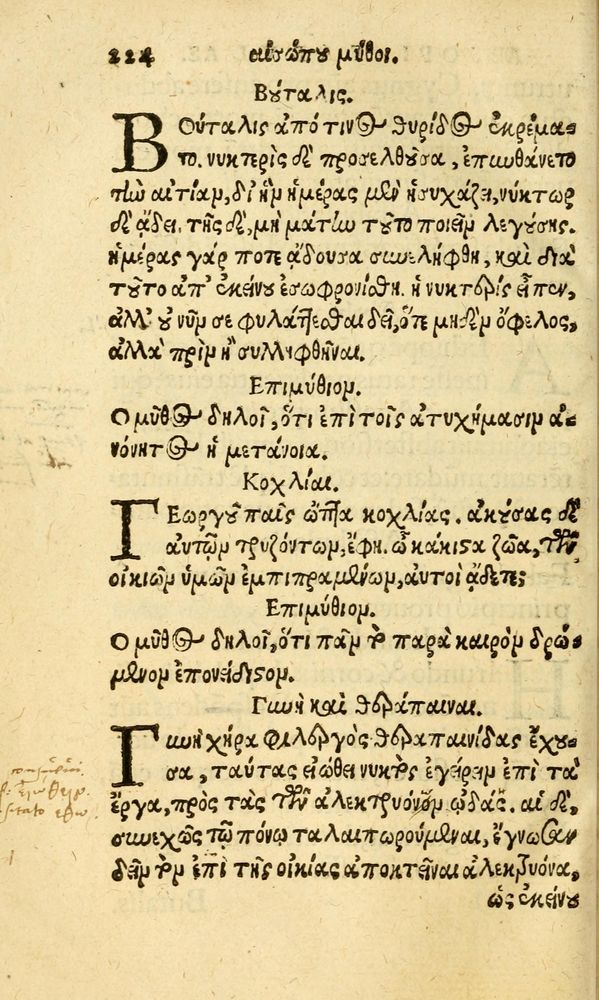 224 αἰσώπου μῦθοι.
Βούταλις.
ΒΟύταλις ἀπό τινος θυρίδος ἐκρέμα-
το. νυκτερὶς δὲ προσελθοῦσα, ἐπυνθάνετο
τὴν αἰτίαν, δι ἣν ἡμέρας μὲν ἡσυχάζει, νύκτωρ
δὲ ᾄδει. τῆς δὲ, μὴ μάτην τοῦτο ποιεῖν λεγούσης.
ἡμέρας γάρ ποτε ᾄδουσα συνελήφθη, καὶ διὰ
τοῦτο ἀπ' ἐκείνου ἐσωφρονίσθη. ἡ νυκτερίς εἶπεν,
ἀλλ' οὐ νῦν σε φυλάττεσθαι δεῖ, ὅτε μηδὲν ὄφελος,
ἀλλὰ πρὶν ἢ συλληφθῆναι.
Επιμύθιον.
Ο μῦθος δηλοῖ, ὅτι ἐπὶ τοῖς ἀτυχήμασιν ἀ-
νόνητος ἡ μετάνοια.
Κοχλίαι.
ΓΕωργοῦ παῖς ὤπτα κοχλίας. ἀκούσας δὲ
αὐτῶν τρυζόντων, ἔφη. ὦ κάκιστα ζῶα, τῶν
οἰκιῶν ὑμῶν ἐμπιπραμένων, αὐτοὶ ᾄδετε;
Επιμύθιον.
Ο μῦθος δηλοῖ, ὅτι πᾶν τὸ παρὰ καιρὸν δρώ-
μενον ἐπονείδιστον.
Γυνὴ καὶ θεράπαιναι.
Γυνὴ χήρα φιλεργὸς θεραπαινίδας ἔχου-
σα, ταύτας εἰώθει νυκτὸς ἐγείρειν ἐπὶ τὰ
ἔργα, πρὸς τὰς τῶν ἀλεκτρυόνων ᾠδάς. αἱ δὲ,
συνεχῶς τῷ πόνῳ ταλαιπωρούμεναι, ἔγνωσαν
δεῖν τὸν ἐπὶ τῆς οἰκίας ἀποκτεῖναι ἀλεκτρυόνα,
ὡς ἐκείνου